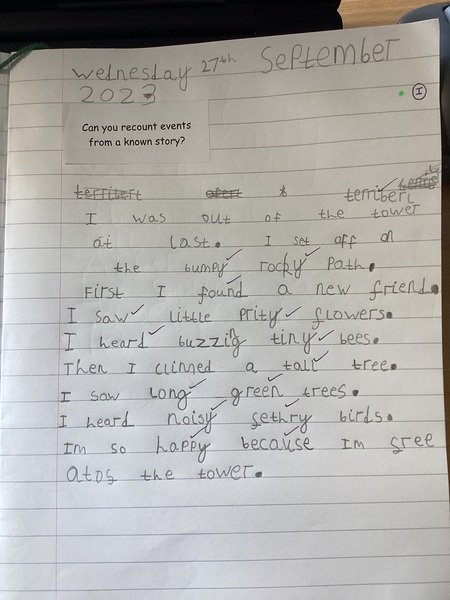 Wednesday 27th September
2023
I
Can you recount events
from a known story?
I was out of the tower
at last. I set off on
the bumpy rocky Path.
First I found a new friend.
I saw little Prity flowers.
I heard buzzing tiny bees.
Then I climed a tall tree.
I saw long green trees.
I heard noisy fethry birds.
Im so happy because Im free
atof the tower.